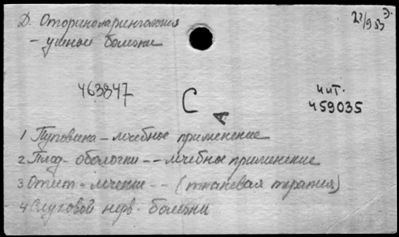 Д. Оториноларингология
27/9 53 Э.
- ушные болезни
463847
С
А
Чит.
459035
1 Пуповина - лечебное применение
2 Плод - оболочки - - лечебное применение
3 Отит - лечение - - (тканевая терапия)
4 Слуховой нерв - болезни